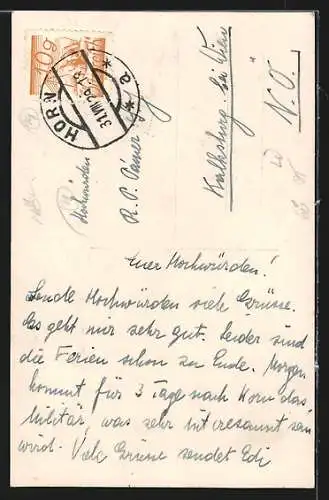 10g
HORN
31.VIII.29
* a *
Hochwürden
R. P.
Kalksburg bei Wien
N. Ö.
Euer Hochwürden!
Sende Hochwürden viele Grüsse.
Es geht mir sehr gut. Leider sind
die Ferien schon zu Ende. Morgen
kommt für 3 Tage nach Horn das
Militär, was sehr interessant sein
wird. Viele Grüsse sendet Edi